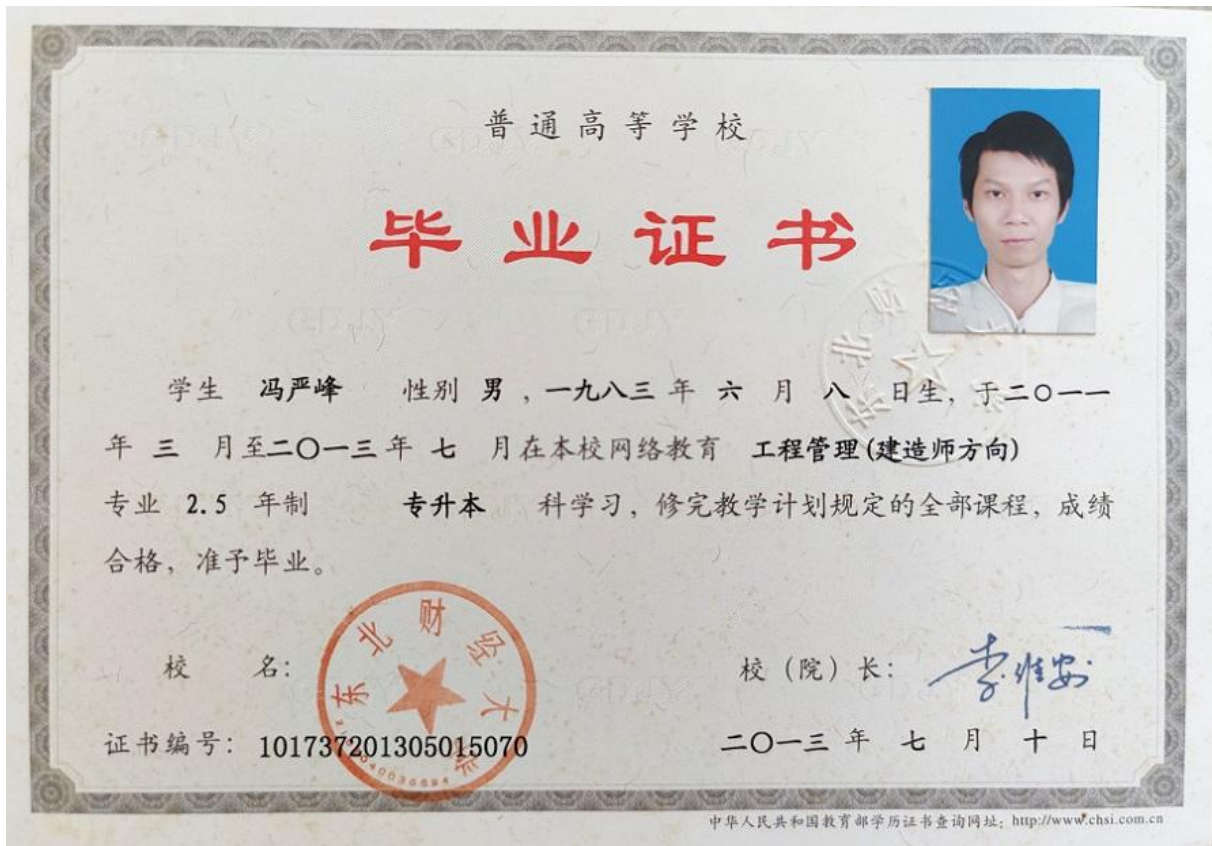 普通高等学校
毕业证书
学生 冯严峰 性别 男 ,一九八三 年 六 月 八 日生, 于二〇一一
年 三 月至二〇一三年 七 月在本校网络教育 工程管理(建造师方向)
专业 2.5 年制 专升本 科学习, 修完教学计划规定的全部课程, 成绩
合格, 准予毕业。
东北财经大学
校 名: 校 (院) 长: 李维安
证书编号: 101737201305015070 二〇一三 年 七 月 十 日
中华人民共和国教育部学历证书查询网址: http://www.chsi.com.cn